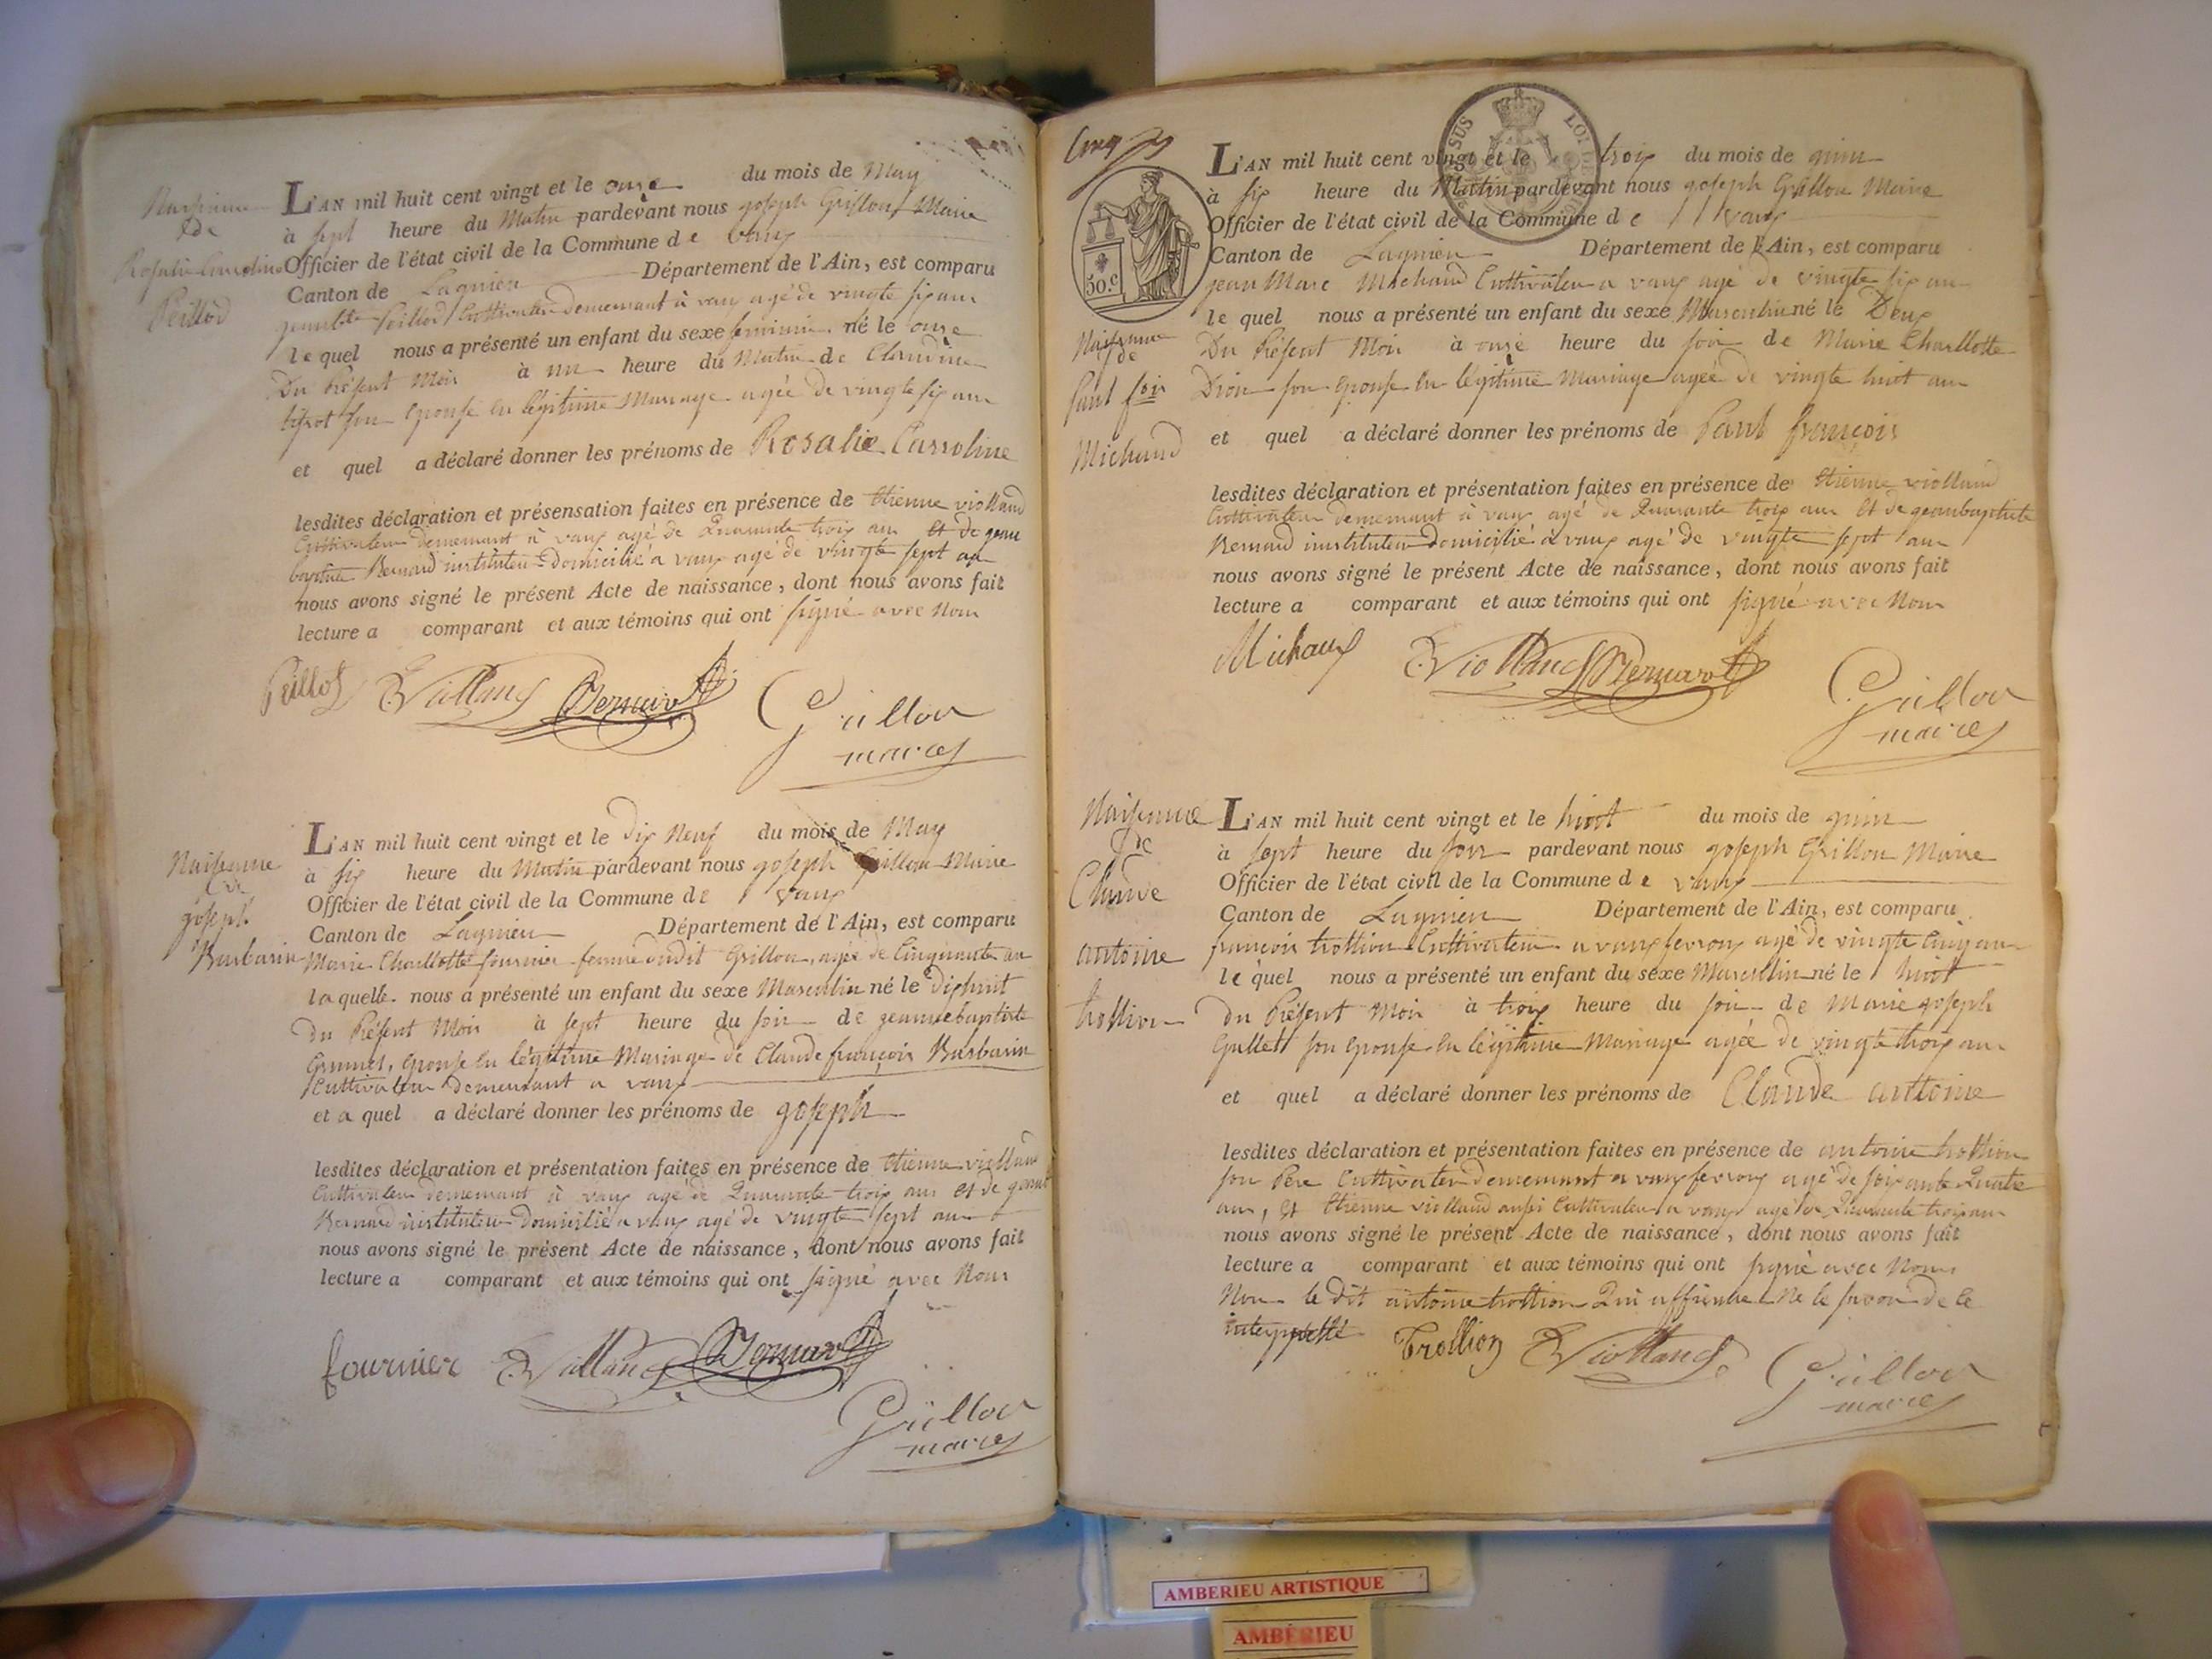 Naissance
de
Rosalie Carroline
Peillod
L'AN mil huit cent vingt et le onze du mois de May
à sept heure du Matin pardevant nous goseph Grillon Maire
Officier de l'état civil de la Commune de vaux
Canton de Lagnieu Département de l'Ain, est comparu
Peillod Cultivateur demeurant à vaux agé de vingte six ans
le quel nous a présenté un enfant du sexe feminin né le onze
Du Présent Mois à un heure du Matin de Claudine
son Epouse En légitime Mariage agée de vingte six ans
et quel a déclaré donner les prénoms de Rosalie Carroline
lesdites déclaration et présensation faites en présence de Etienne violland
Cultivateur demeurant à vaux agé de Quarante trois ans Et de gean
baptiste Bernard instituteur domicilié a vaux agé de vingte sept ans
nous avons signé le présent Acte de naissance, dont nous avons fait
lecture a comparant et aux témoins qui ont signé avec Nous
Peillod EViolland Bernard Grillon
maire
Naissance
de
goseph
Barbarin
L'AN mil huit cent vingt et le dix Neuf du mois de May
à six heure du Matin pardevant nous goseph Grillon Maire
Officier de l'état civil de la Commune de vaux
Canton de Lagnieu Département de l'Ain, est comparu
Marie Charllotte fournier femme dudit Grillon, agée de Cinquante an
la quelle nous a présenté un enfant du sexe Masculin né le Dixhuit
du Présent Mois à sept heure du soir de geannebaptiste
Epouse En légitime Mariage de Claude françois Barbarin
Cultivateur demeurant a vaux
et a quel a déclaré donner les prénoms de goseph
lesdites déclaration et présentation faites en présence de Etienne violland
Cultivateur demeurant à vaux agé de Quarante trois ans Et de geanb
Bernard instituteur domicilié a vaux agé de vingte sept ans
nous avons signé le présent Acte de naissance, dont nous avons fait
lecture a comparant et aux témoins qui ont signé avec Nous
fournier EViolland Bernard
Grillon
maire
Cinq
SUS LOI
50.c
Naissance
de
Paul fois
Michaud
L'AN mil huit cent vingt et le trois du mois de guin
à six heure du Matin pardevant nous goseph Grillon Maire
Officier de l'état civil de la Commune de vaux
Canton de Lagnieu Département de l'Ain, est comparu
jean Marc Michaud Cultivateur a vaux agé de vingte six an
le quel nous a présenté un enfant du sexe Masculin né le Deux
Du Présent Mois à onze heure du soir de Marie Charllotte
Dion son Epouse En légitime Mariage agée de vingte huit an
et quel a déclaré donner les prénoms de Paul françois
lesdites déclaration et présentation faites en présence de Etienne violland
Cultivateur demeurant à vaux agé de Quarante trois ans Et de geanbaptiste
Bernard instituteur domicilié a vaux agé de vingte sept an
nous avons signé le présent Acte de naissance, dont nous avons fait
lecture a comparant et aux témoins qui ont signé avec Nous
Michaux EViolland Bernard Grillon
maire
Naissance
de
Claude
antoine
trollion
L'AN mil huit cent vingt et le huit du mois de guin
à sept heure du soir pardevant nous goseph Grillon Maire
Officier de l'état civil de la Commune de vaux
Canton de Lagnieu Département de l'Ain, est comparu
françois trollion Cultivateur a vaux fevroux agé de vingte Cinq ans
le quel nous a présenté un enfant du sexe Masculin né le huit
du Présent Mois à trois heure du soir de Marie goseph
Gullett son Epouse En légitime Mariage agée de vingte trois ans
et quel a déclaré donner les prénoms de Claude antoine
lesdites déclaration et présentation faites en présence de antoine trollion
son Pere Cultivateur demeurant a vaux fevroux agé de soixante Quatre
ans, Et Etienne violland aussi Cultivateur a vaux agé de Quarante trois ans
nous avons signé le présent Acte de naissance, dont nous avons fait
lecture a comparant et aux témoins qui ont signé avec Nous
Non le dit antoine trollion Qui affirme Ne le savoir de ce
interppellé Trollion EViolland Grillon
maire
AMBERIEU ARTISTIQUE
AMBÉRIEU